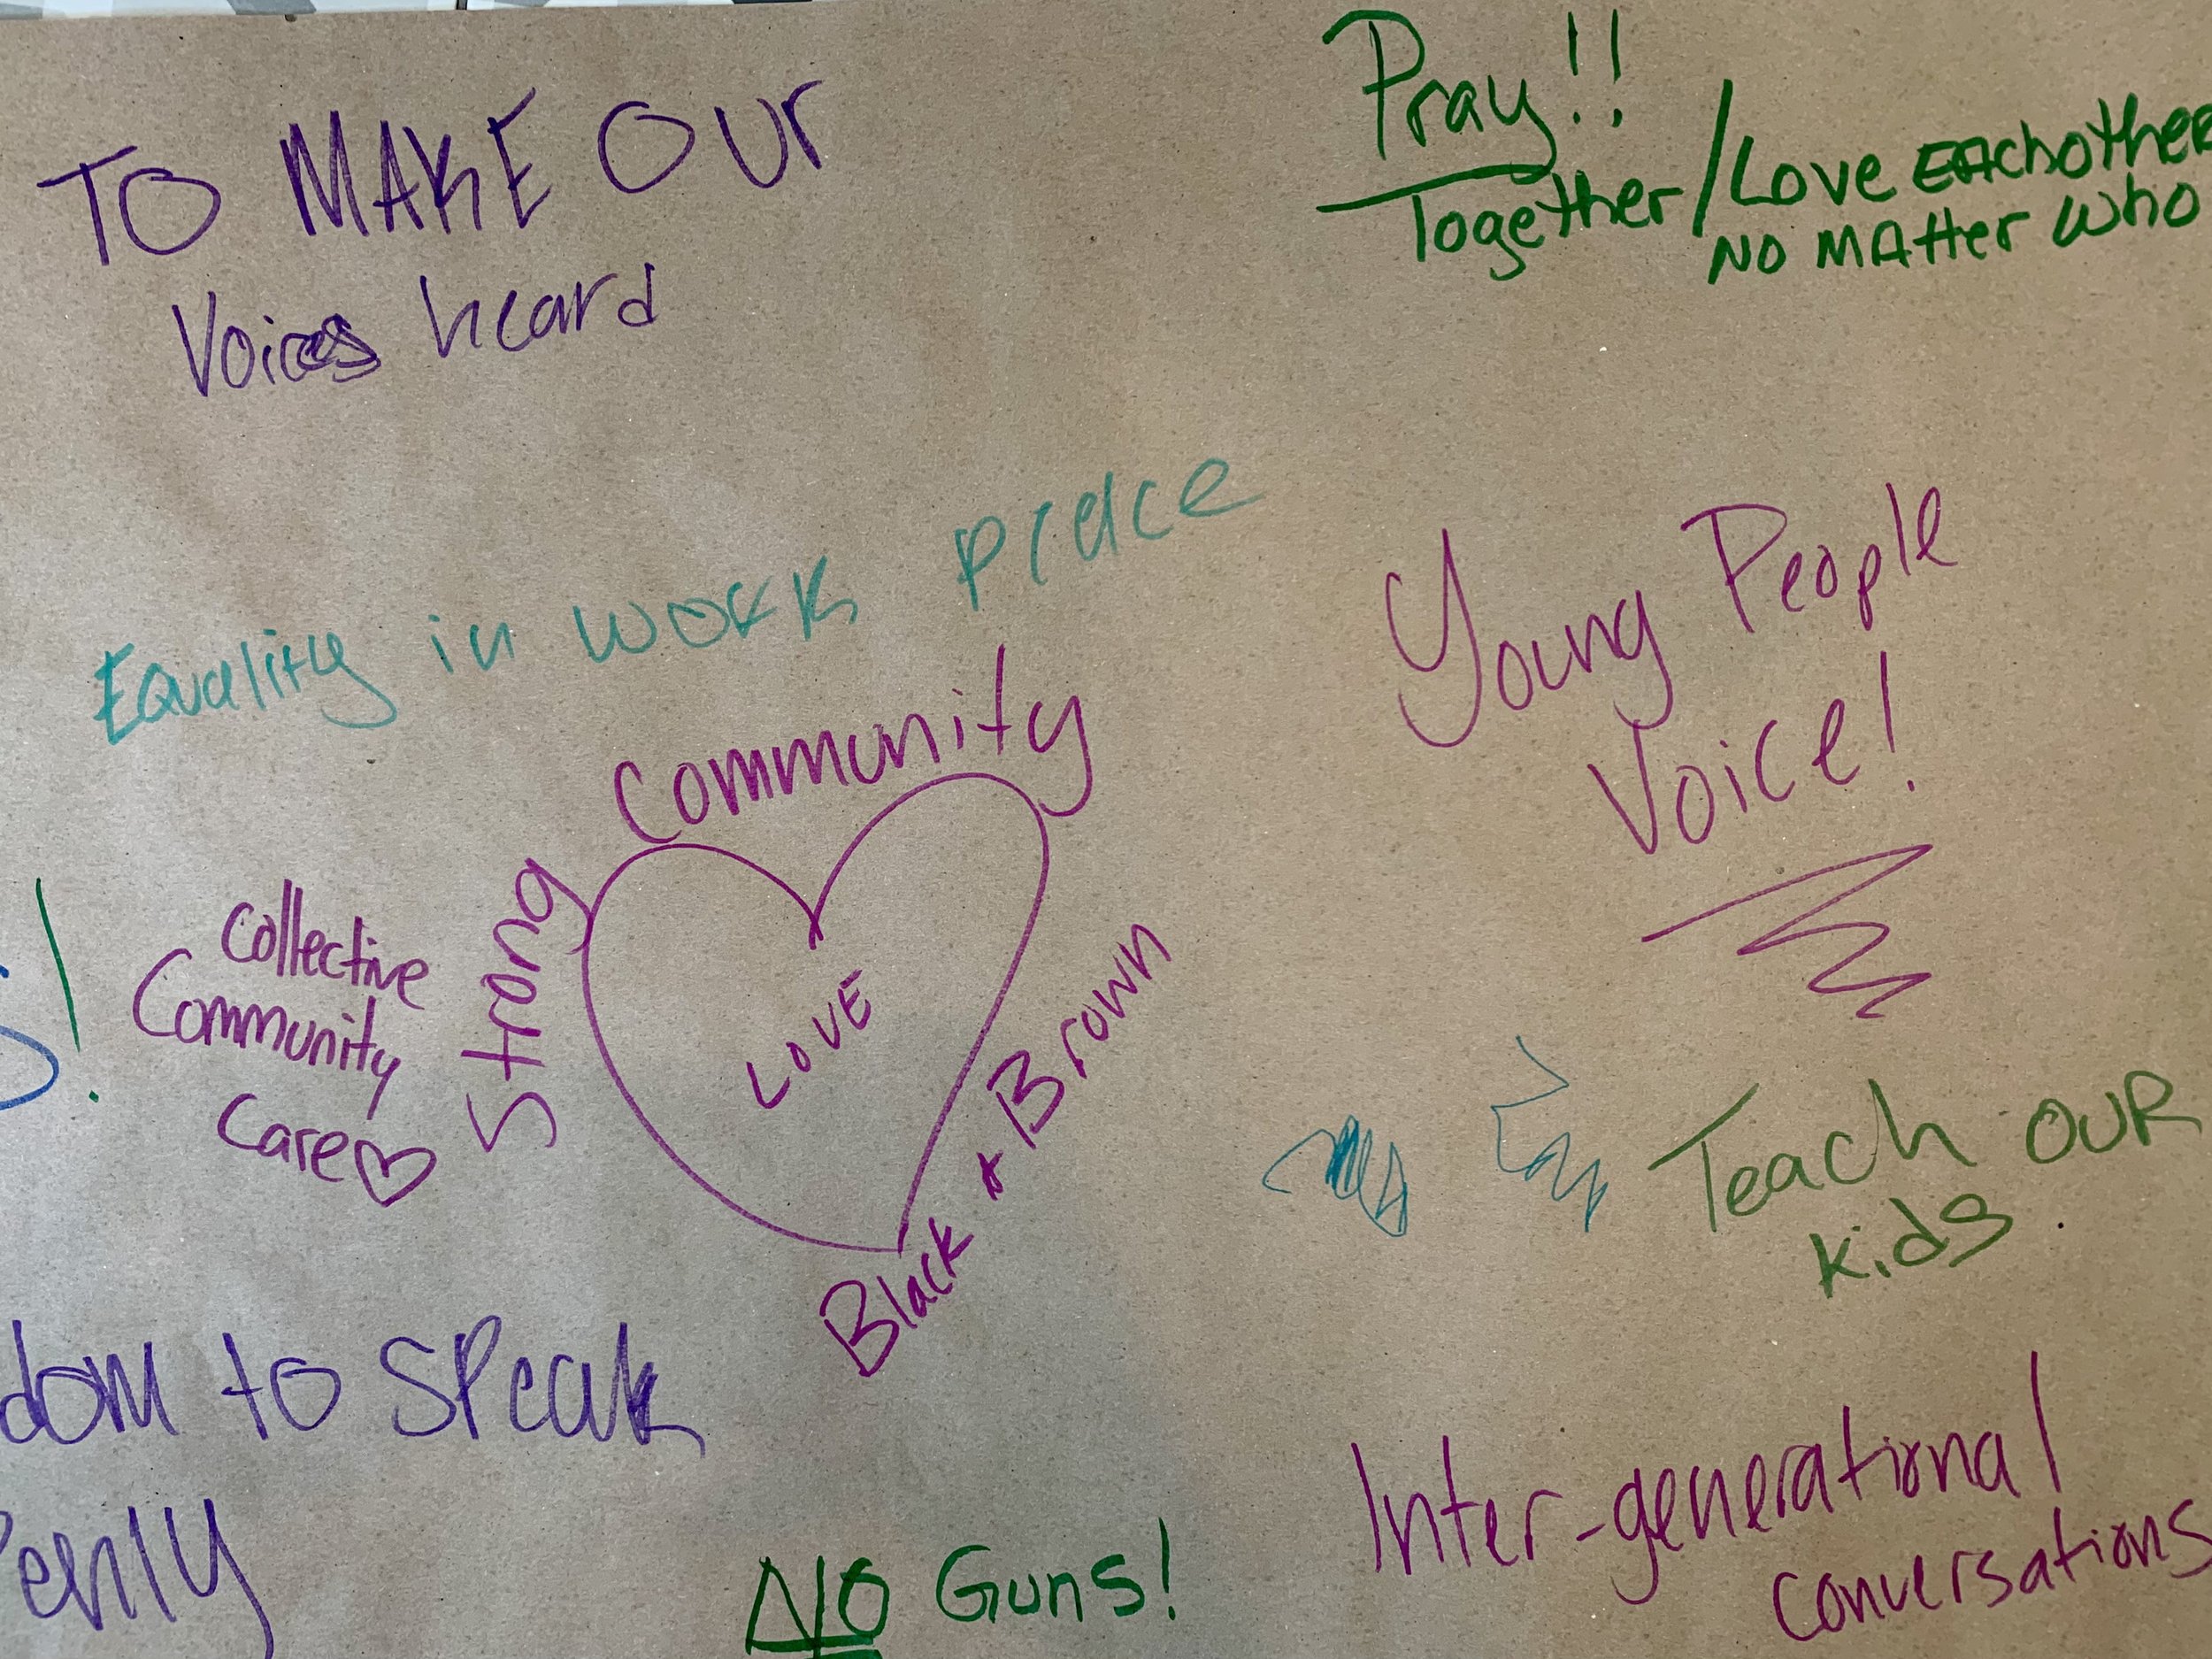 TO MAKE OUr
Voices heard
Pray!!
Together/Love EAchother
NO MAtter Who
Equality in work place
Young People
Voice!
Community
Strong
LOVE
Black & Brown
Collective
Community
Care
Teach OUR
kids.
dom to SPeak
Penly
NO Guns!
Inter-generational
conversations